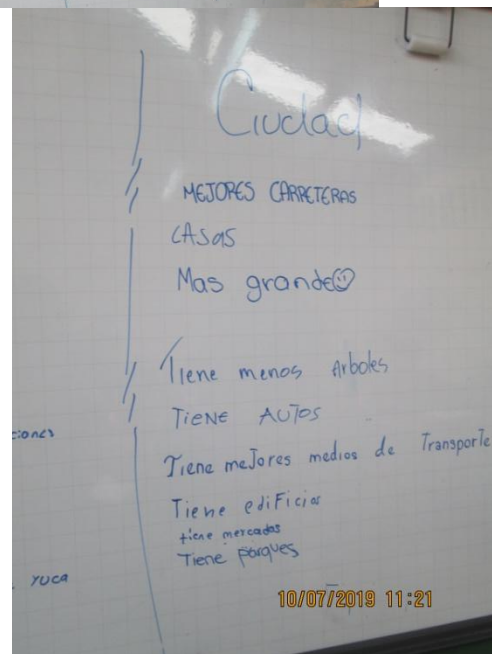 Ciudad
MEJORES CARRETERAS
CASAS
Mas grande
Tiene menos Arboles
TIENE AUTOS
Tiene mejores medios de Transporte
Tiene ediFicios
tiene mercados
Tiene parques
ciones
YUCA
10/07/2019 11:21